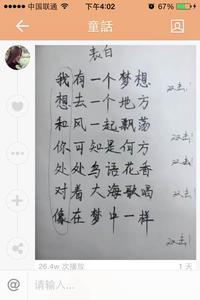 中国联通
下午4:02
童話
表白
我有一个梦想
双击!
想去一个地方
和风一起飘荡
双击!
你可知是何方
双击!
处处鸟语花香
对着大海歌唱
双击!
像在梦中一样
双击!
26.4w 次播放
1 天
@
请输入...